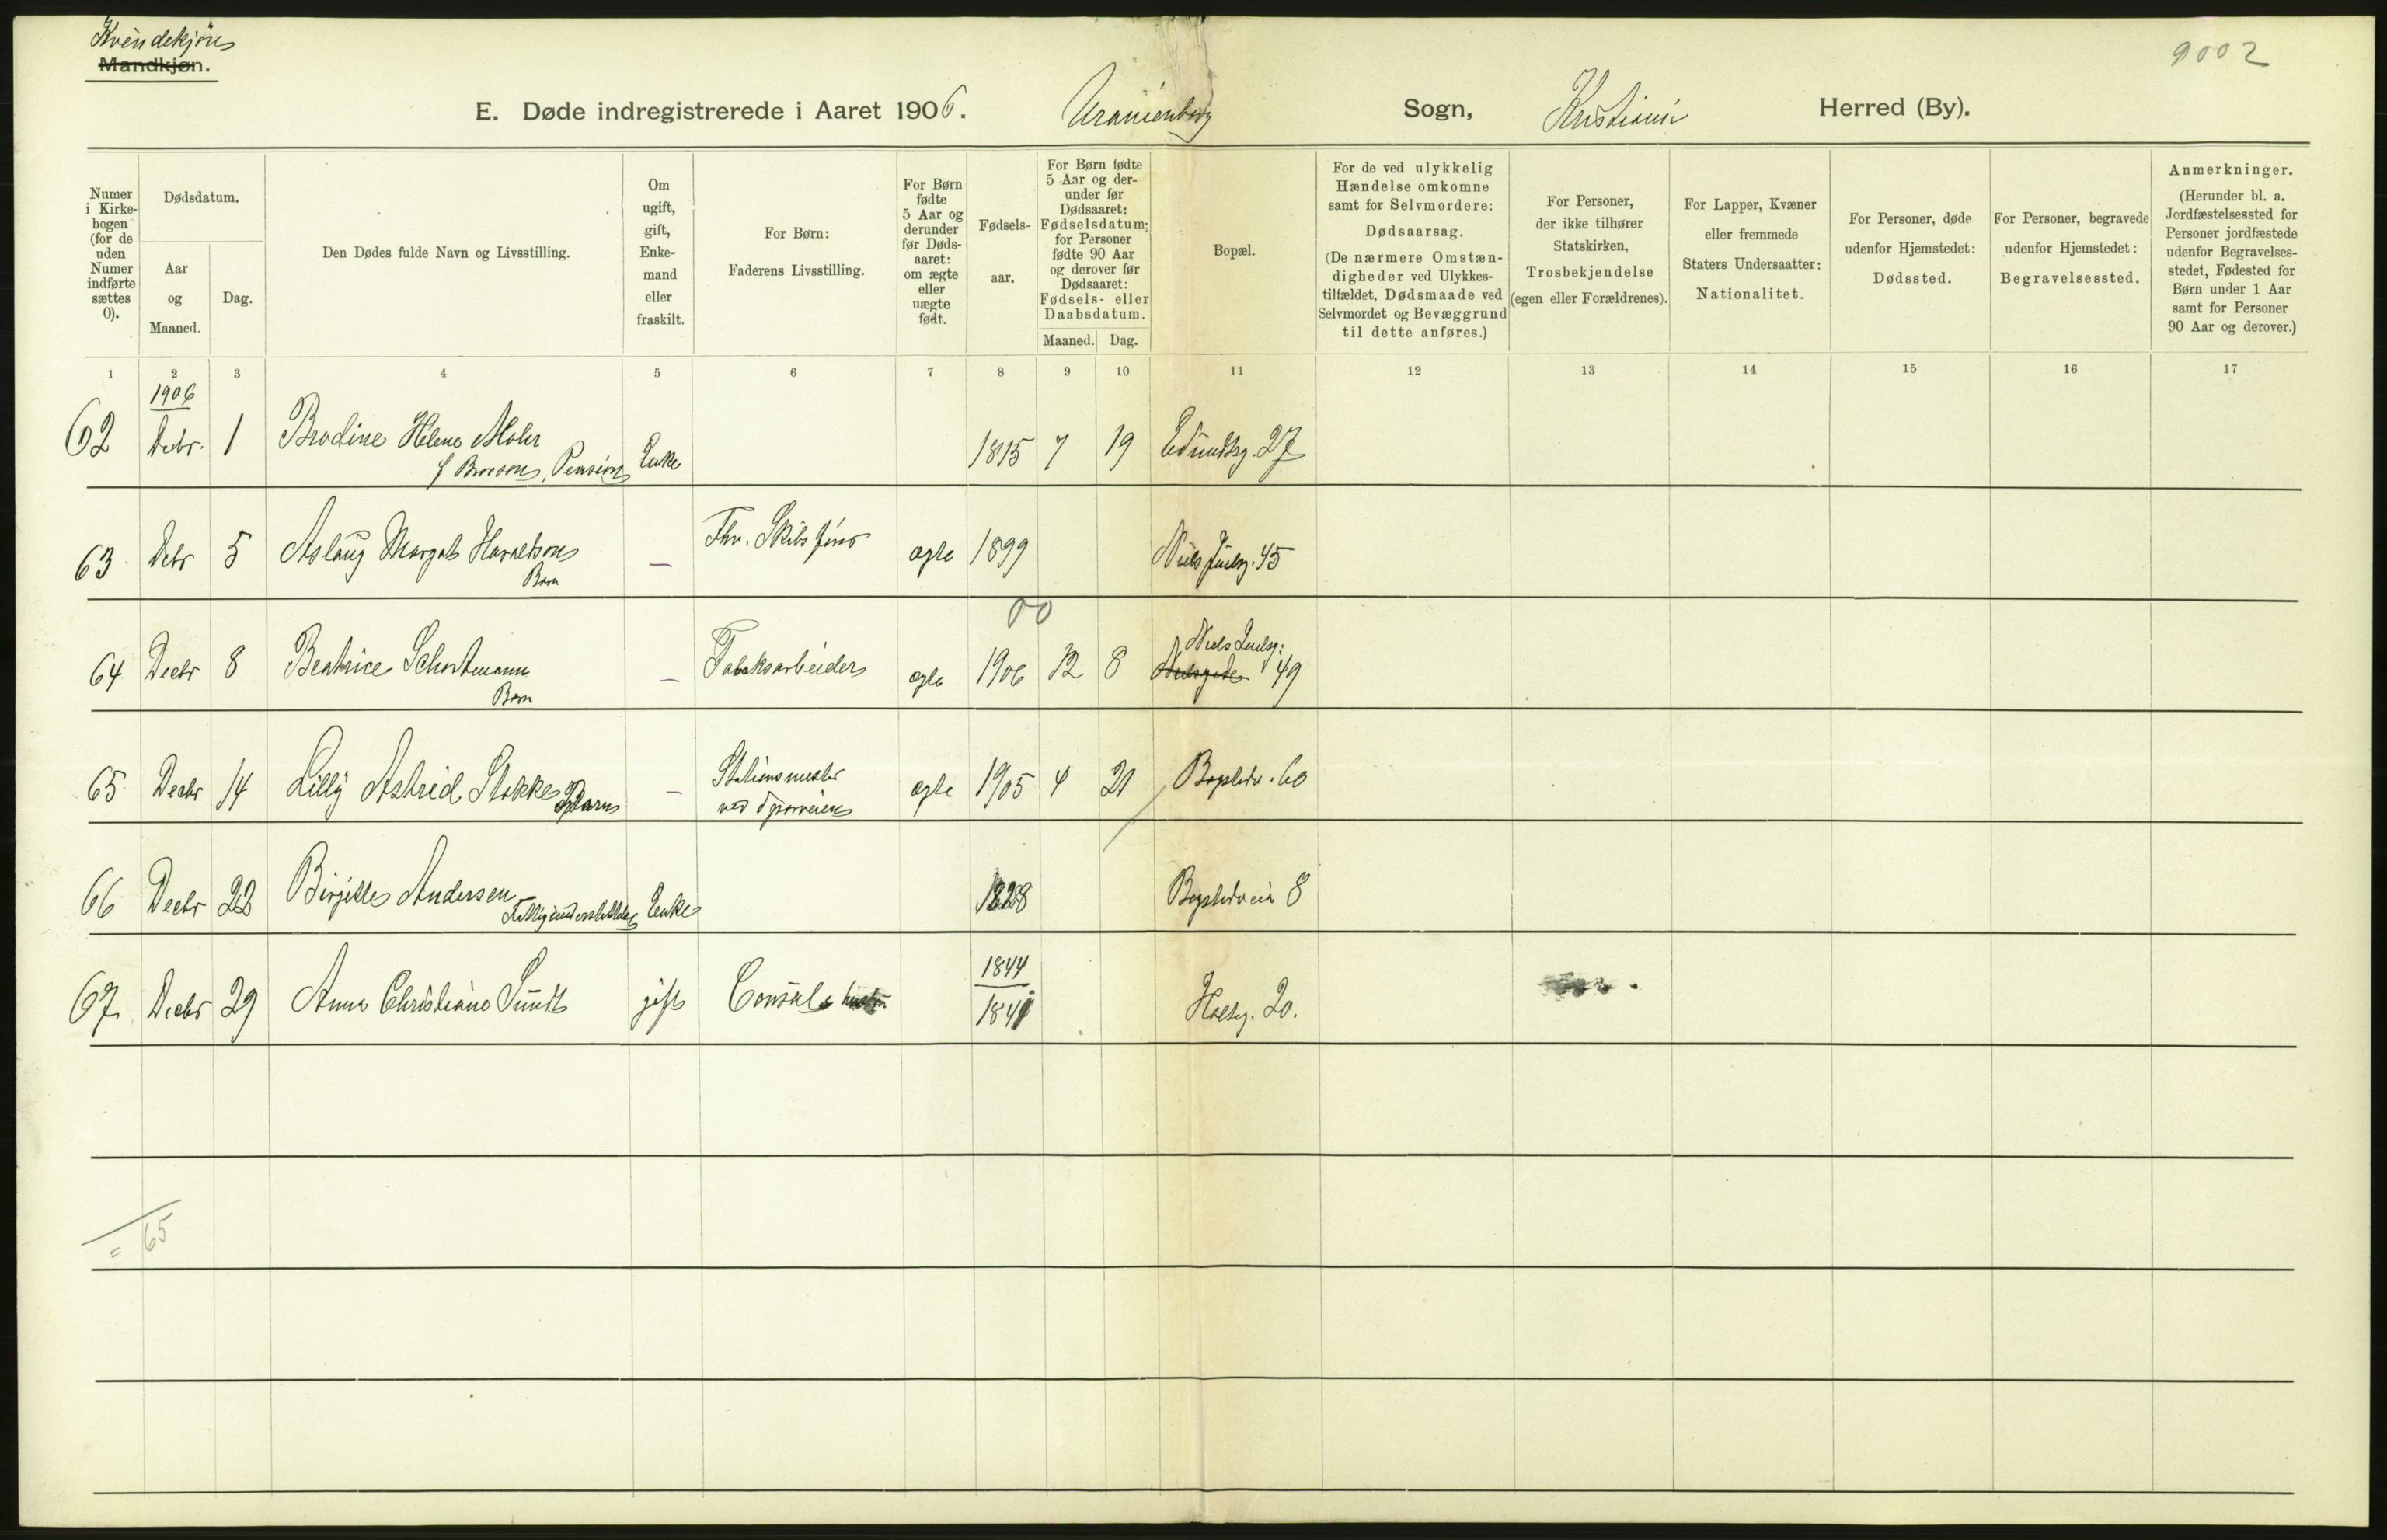 Kvindekjøn
Mandkjøn.
9002
E. Døde indregistrerede i Aaret 1906. Uranienborg Sogn, Kristiania Herred (By).
Numer i Kirkebogen (for de uden Numer indførte sættes 0).
Dødsdatum.
Aar og Maaned.
Dag.
Den Dødes fulde Navn og Livsstilling.
Om ugift, gift, Enkemand eller fraskilt.
For Børn: Faderens Livsstilling.
For Børn fødte 5 Aar og derunder før Dødsaaret: om ægte eller uægte født.
Fødselsaar.
For Børn fødte 5 Aar og derunder før Dødsaaret: Fødselsdatum; for Personer fødte 90 Aar og derover før Dødsaaret: Fødsels- eller Daabsdatum.
Maaned. Dag.
Bopæl.
For de ved ulykkelig Hændelse omkomne samt for Selvmordere: Dødsaarsag. (De nærmere Omstændigheder ved Ulykkestilfældet, Dødsmaade ved Selvmordet og Bevæggrund til dette anføres.)
For Personer, der ikke tilhører Statskirken, Trosbekjendelse (egen eller Forældrenes).
For Lapper, Kvæner eller fremmede Staters Undersaatter: Nationalitet.
For Personer, døde udenfor Hjemstedet: Dødssted.
For Personer, begravede udenfor Hjemstedet: Begravelsessted.
Anmerkninger. (Herunder bl. a. Jordfæstelsessted for Personer jordfæstede udenfor Begravelsesstedet, Fødested for Børn under 1 Aar samt for Personer 90 Aar og derover.)
1 2 3 4 5 6 7 8 9 10 11 12 13 14 15 16 17
1906
62 Debr. 1 Brodine Helene Mohr Enke 1815 7 19 27
Pension
63 Debr 5 Aslaug Margot Haraldsen — Fhv. Skibsfører ægte 1899 Niels Juelsg. 45
Barn
00
64 Decbr 8 Beatrice Schortmann — Tabaksarbeider ægte 1906 12 8 Niels Juelsg: 49
Barn
65 Decbr 14 Lilly Astrid Stokke Barn — Stationsmester ægte 1905 4 21 Bogstadv. 60
ved Sporveien
66 Decbr 22 Birgitte Andersen Enke 1828 Bogstadveien 8
Fattigunderstøttet
1844
67 Decbr 29 Anna Christiane Sundt gift Consul hustru 1841 Holteg. 20.
= 65